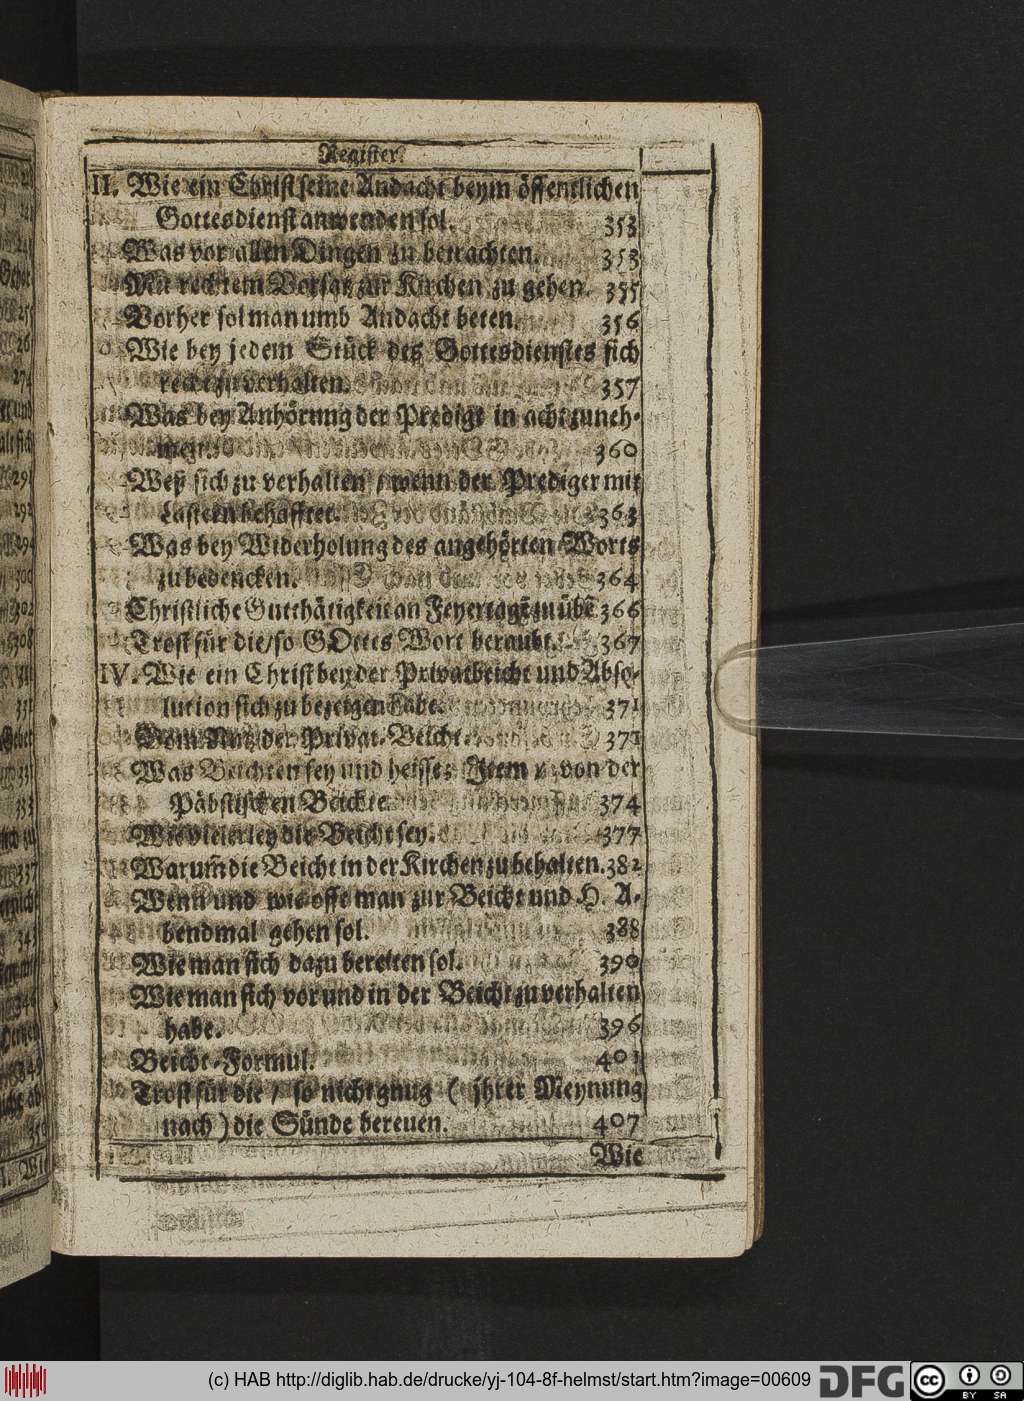 Register.
II. Wie ein Christ seine Andacht beym öffentlichen
Gottesdienst anwenden sol. 353
Was vor allen Dingen zu betrachten. 353
Mit rechtem Vorsatz zur Kirchen zu gehen. 355
Vorher sol man umb Andacht beten. 356
Wie bey jedem Stück deß Gottesdienstes sich
recht zu verhalten. 357
Was bey Anhörung der Predigt in acht zuneh-
men. 360
Weß sich zu verhalten / wenn der Prediger mit
Lastern behafftet. 363
Was bey Widerholung des angehörten Worts
zu bedencken. 364
Christliche Gutthätigkeit an Feyertagē zu übē 366
Trost für die/so GOttes Wort beraubt. 367
IV. Wie ein Christ bey der Privatbeicht und Abso-
lution sich zu bezeigen habe. 371
Vom Nutz der Privat-Beicht. 371
Was Beichten sey und heisse; Item / von der
Päbstischen Beichte. 374
Wie vielerley die Beicht sey. 377
Warum̄ die Beicht in der Kirchen zu behalten. 382
Wenn und wie offt man zur Beicht und H. A-
bendmal gehen sol. 388
Wie man sich dazu bereiten sol. 390
Wie man sich vor und in der Beicht zu verhalten
habe. 396
Beicht-Formul. 401
Trost für die / so nicht gnug ( jhrer Meynung
nach ) die Sünde bereuen. 407
Wie
(c) HAB http://diglib.hab.de/drucke/yj-104-8f-helmst/start.htm?image=00609
DFG
cc BY SA